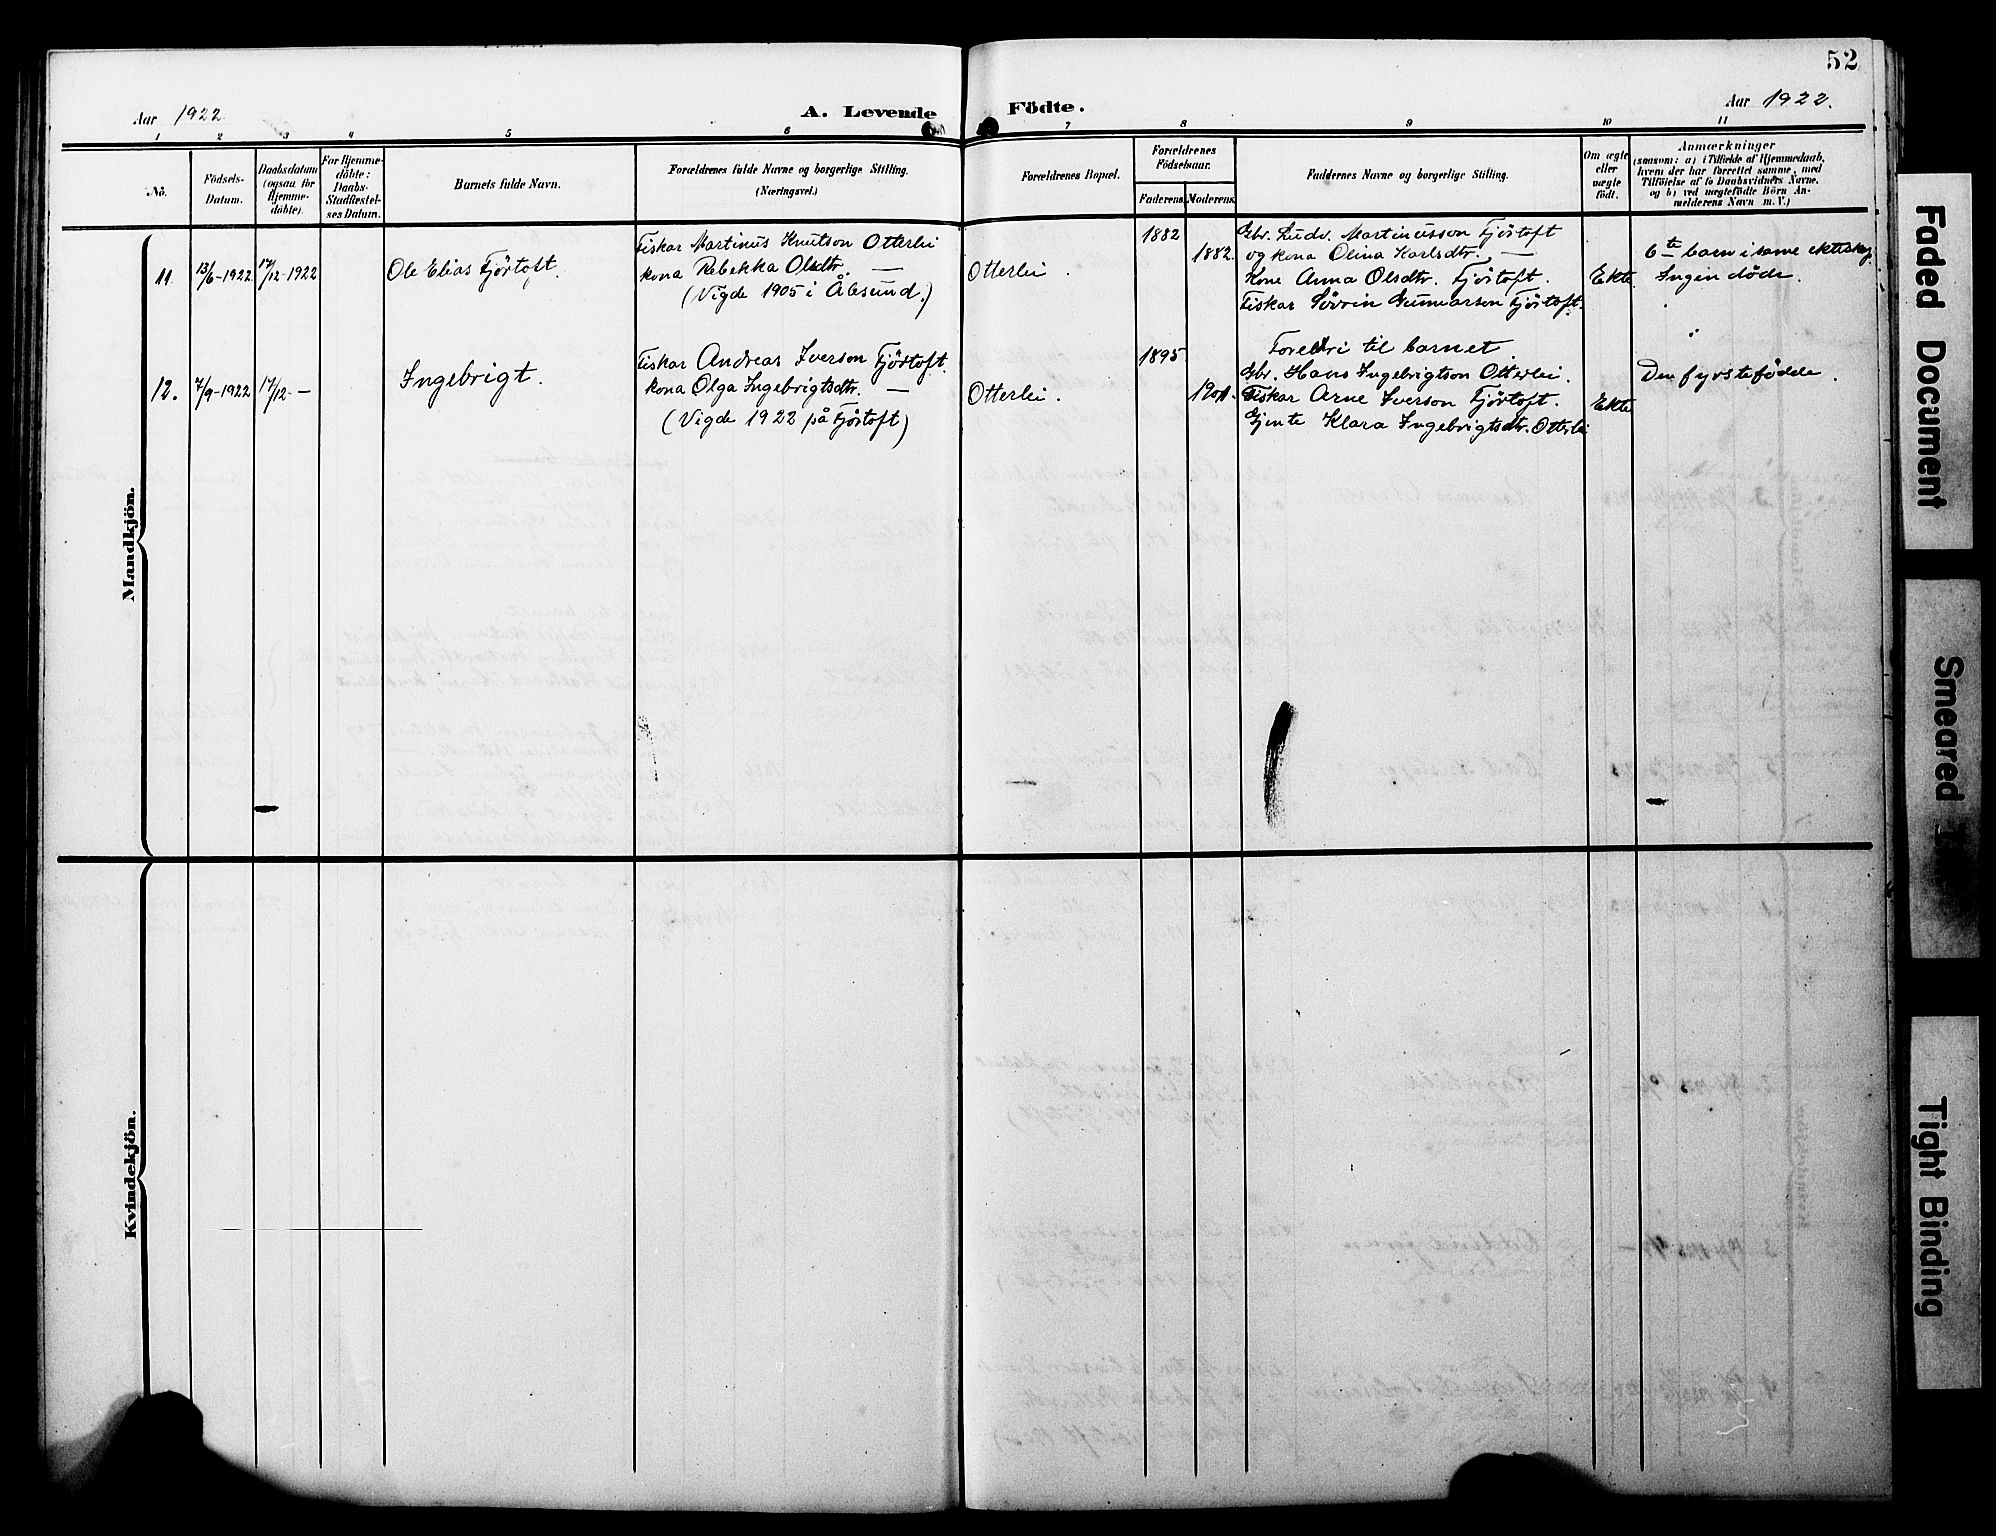 52
Aar 1922.
A. Levende Födte.
Aar 1922.
1 2 3 4 5 6 7 8 9 10 11
No.
Födsels-Datum.
Daabsdatum (ogsaa for Hjemme-döbte).
For Hjemme-döbte: Daabs-Stadfæstel-ses Datum.
Barnets fulde Navn.
Forældrenes fulde Navne og borgerlige Stilling.
(Næringsvei.)
Forældrenes Bopæl.
Forældrenes Födselsaar.
Faderens. Moderens.
Faddernes Navne og borgerlige Stilling.
Om ægte eller uægte födt.
Anmærkninger
(saasom: a) i Tilfælde af Hjemmedaab,
hvem der har forrettet samme, med
Tilföielse af to Daabsvidners Navne.
og b) ved uægtefödte Börn An-
melderens Navn m. V.)
Mandkjön.
11. 13/6-1922 17/12-1922
Ole Elias Fjörtoft.
Fiskar Martinus Knutson Otterlei
kona Rebekka Olsdtr. —
(Vigde 1905 i Ålesund.)
Otterlei.
1882
1882.
Gbr. Ludv. Martinusson Fjörtoft
og kona Olina Karlsdtr. —
Kone Anna Olsdtr. Fjörtoft.
Fiskar Sövrin Gunnarson Fjörtoft.
Ekte
6te barn i same ekteskap.
Ingen döde.
12. 7/9-1922 17/12 —
Ingebrigt.
Fiskar Andreas Iverson Fjörtoft.
kona Olga Ingebrigtsdtr. —
(Vigde 1922 på Fjörtoft)
Otterlei.
1895
1901.
Foreldri til barnet.
Gbr. Hans Ingebrigtson Otterlei.
Fiskar Arne Iverson Fjörtoft.
Gjente Klara Ingebrigtsdtr. Otterlei
Ekte
Den fyrstefödde.
Kvindekjön.
Faded Document
Smeared
Tight Binding